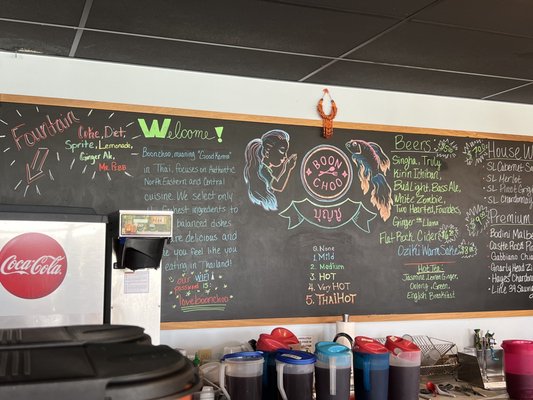 Fountain
Coke, Diet,
Sprite, Lemonade
Ginger Ale,
Mr. Pibb
Coca-Cola
Welcome!
Boon choo, meaning "Good Karma"
in Thai, focuses on Authentic
North Eastern and Central
cuisine. We select only
best ingredients to
balanced dishes
are delicious and
you feel like you're
eating in Thailand!
WiFi
password
is
iloveboonchoo
BOON
CHOO
บุญชู
0. None
1. Mild
2. Medium
3. HOT
4. Very HOT
5. Thai Hot
Beers
Singha, Truly
Kirin Ichiban,
Bud Light, Bass Ale,
White Zombie,
Two Hearted, Founders
Ginger Llama
Flat Rock Ciders
Ozeki Warm Sake
Hot Tea
Jasmine, Ginger
Oolong, Green,
English Breakfast
House W
SL Cabernet Sau
SL Merlot
SL Pinot Grig
SL Chardonna
Premium
Bodini Malbe
Castle Rock
Gabbiano Chi
Gnarly Head Zi
Hayes Chardonn
Line 39 Sauv